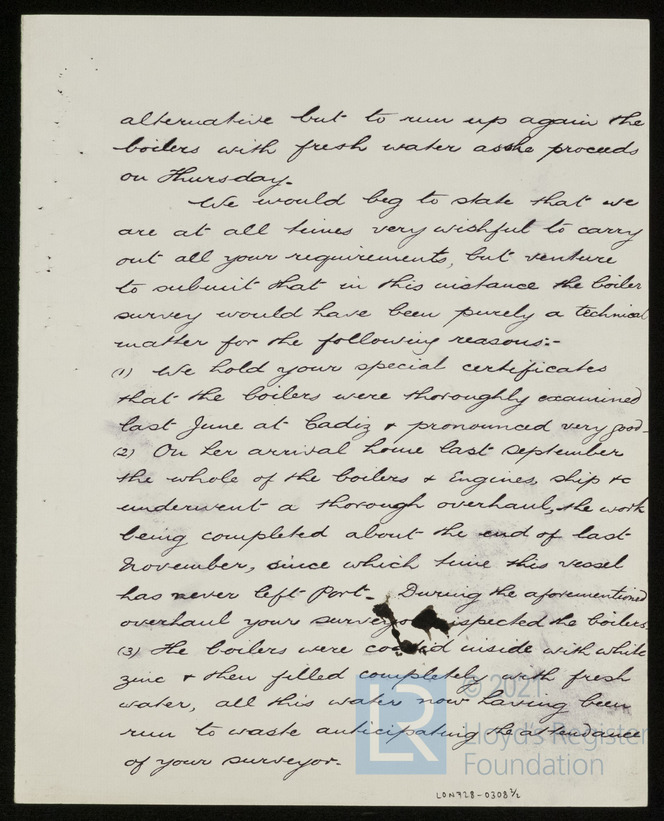 alternative but to run up again the
boilers with fresh water as she proceeds
on Thursday.
We would beg to state that we
are at all times very wishful to carry
out all your requirements, but venture
to submit that in this instance the boiler
survey would have been purely a technical
matter for the following reasons:-
(1) We hold your special certificates
that the boilers were thoroughly examined
last June at Cadiz & pronounced very good-
(2) On her arrival home last September
the whole of the boilers & Engines, ship &c
underwent a thorough overhaul, the work
being completed about the end of last
November, since which time this vessel
has never left Port. During the aforementioned
overhaul your surveyor inspected the boilers.
(3) The boilers were coated inside with white
zinc & then filled completely with fresh
water, all this water now having been
run to waste anticipating the attendance
of your surveyor.
© 2021
LR Lloyd's Register
Foundation
LON728-0308 2/2